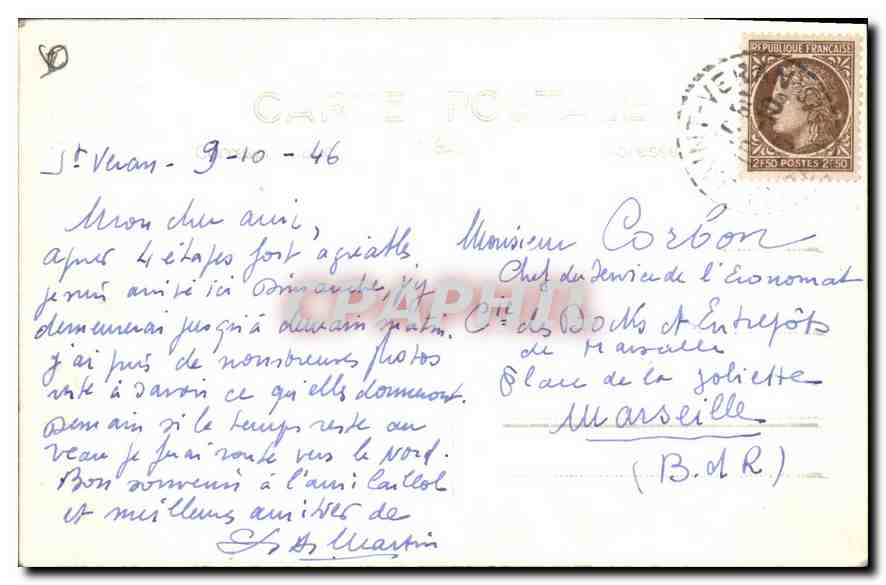 CARTE POSTALE
RÉPUBLIQUE FRANÇAISE
2F50 POSTES 2F50
St Veran - 9-10-46
Mon cher ami,
après 4 étapes fort agréables
je suis arrivé ici Dimanche, j'y
demeurerai jusqu'à demain matin.
j'ai pris de nombreuses photos
reste à savoir ce qu'elles donneront.
Demain si le temps reste au
beau je ferai route vers le Nord.
Bon souvenir à l'ami Caillol
et meilleures amitiés de
Martin
Monsieur Corbon
Chef du Service de l'Economat
Cie des Docks et Entrepôts
de Marseille
Place de la Joliette
Marseille
(B. d R.)
CPAPHIL